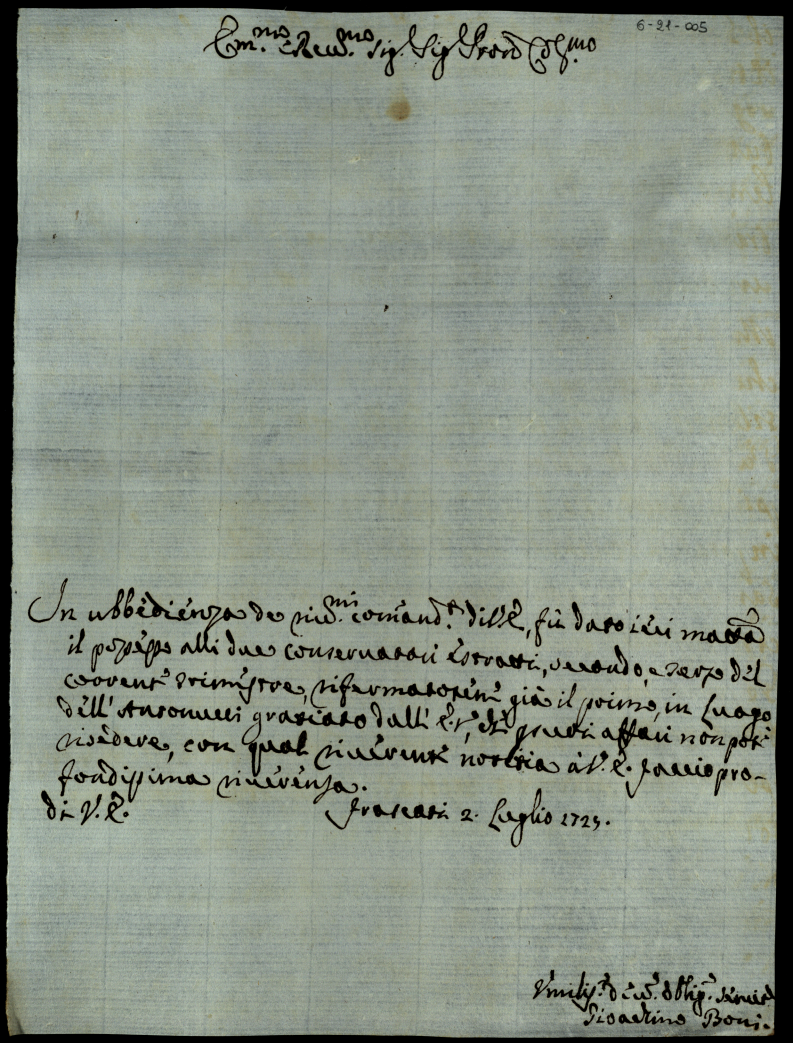 6-21-005
Em.mo e Reu.mo Sig. Sig. Pron Col.mo
In ubbedienza de riu.mi comand.ti di V.E., fù dato ieri matta
il possesso alli due conservatori estratti, secondo, e terzo del
corrente trimestre, rifermatosene già il primo, in luogo
dell'Antonucci graziato dall'E.V., che per suoi affari non potè
risedere, con qual riuerente notitia à V.E. faccio pro-
fondissima riuerenza.
di V.E. Frascati 2. Luglio 1725.
Vmiliss. deu. oblig. seruit.
Gioachino Boni.